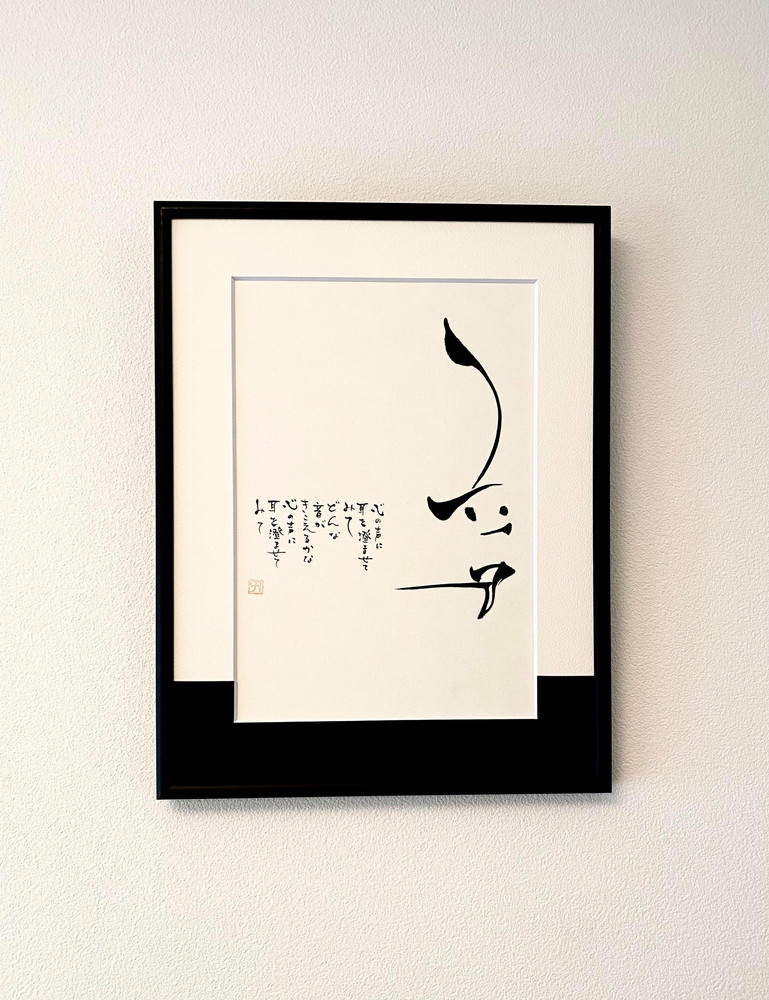 心の声に
耳を澄ませて
みて
どんな
音が
きこえるかな
心の声に
耳を澄ませて
みて